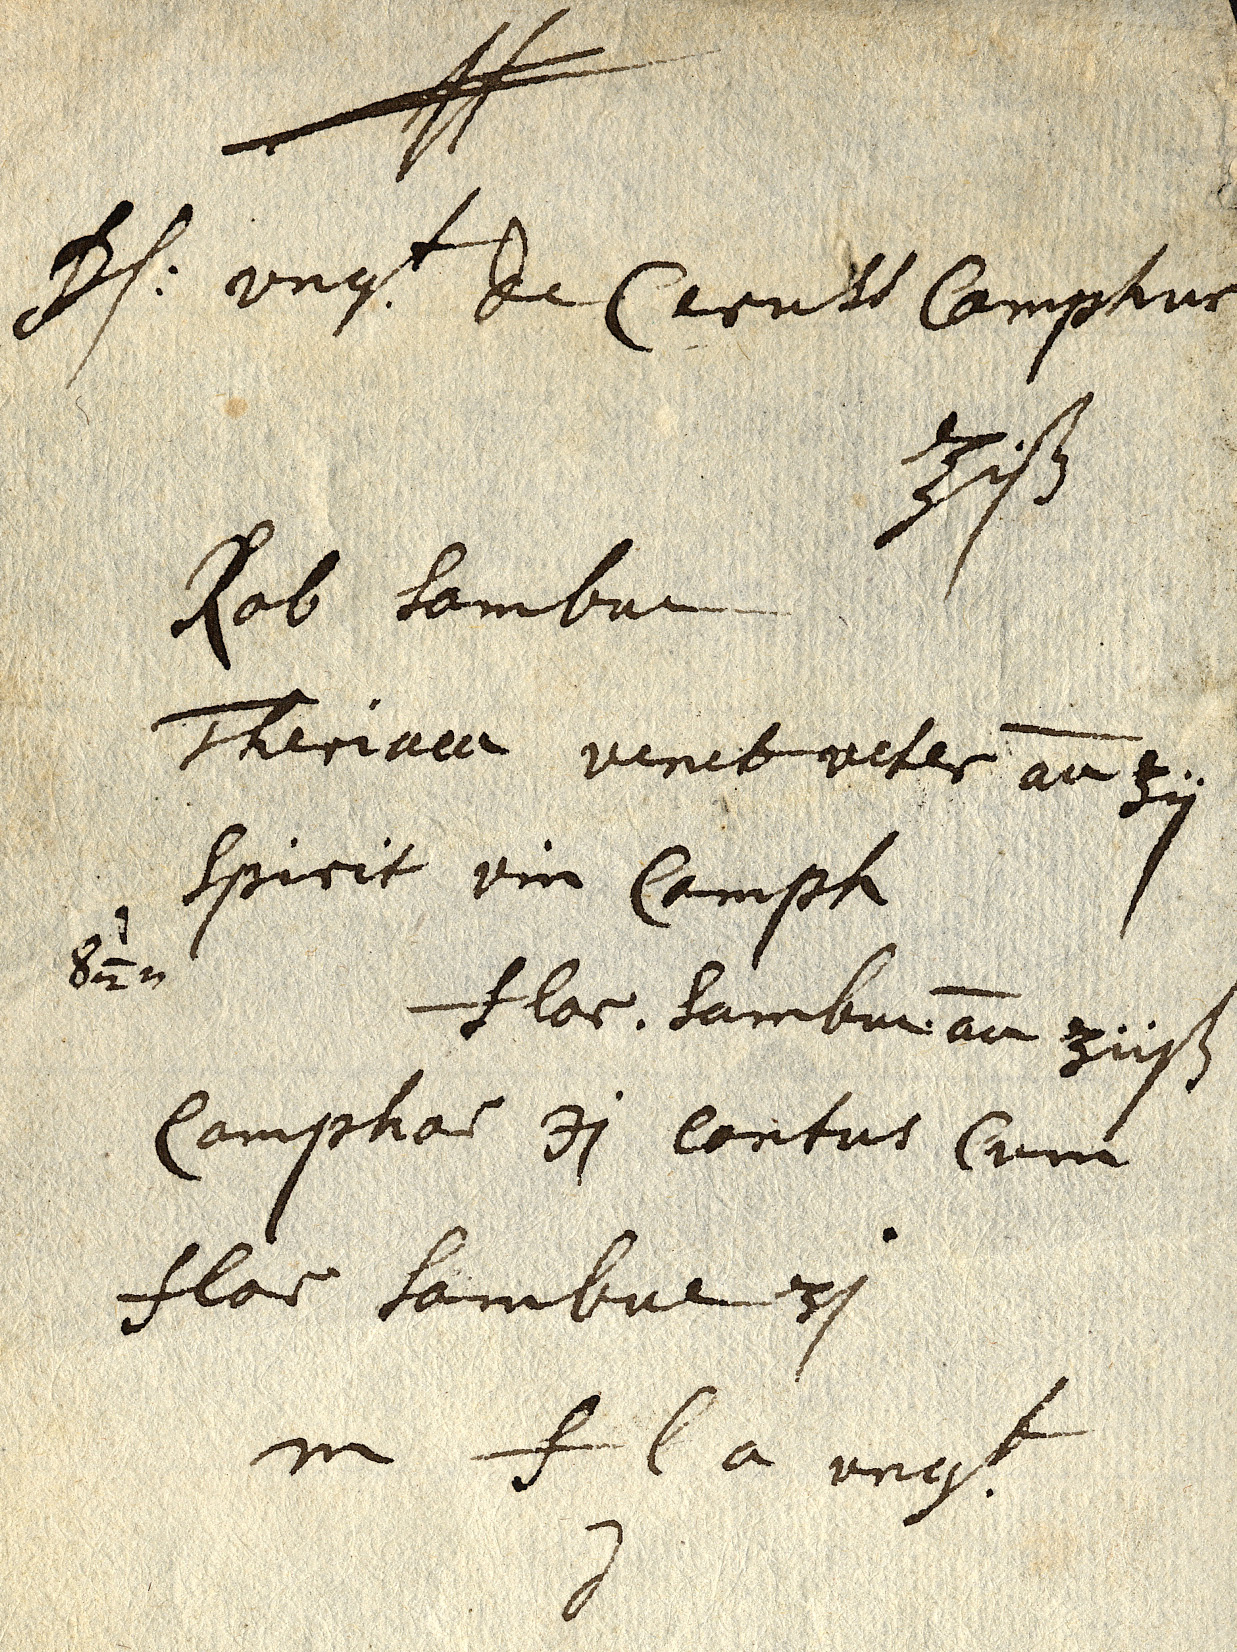 ℞: vngt. de Ceruss Camphur
℥iß
Rob Sambuc
Theriaca venet veter āā ʒij
Spirit vin Camph
8½
flor. Sambuc. āā ʒiiß
Camphor ℈j contus Cum
flor Sambuc ʒj
m f l a vngt.